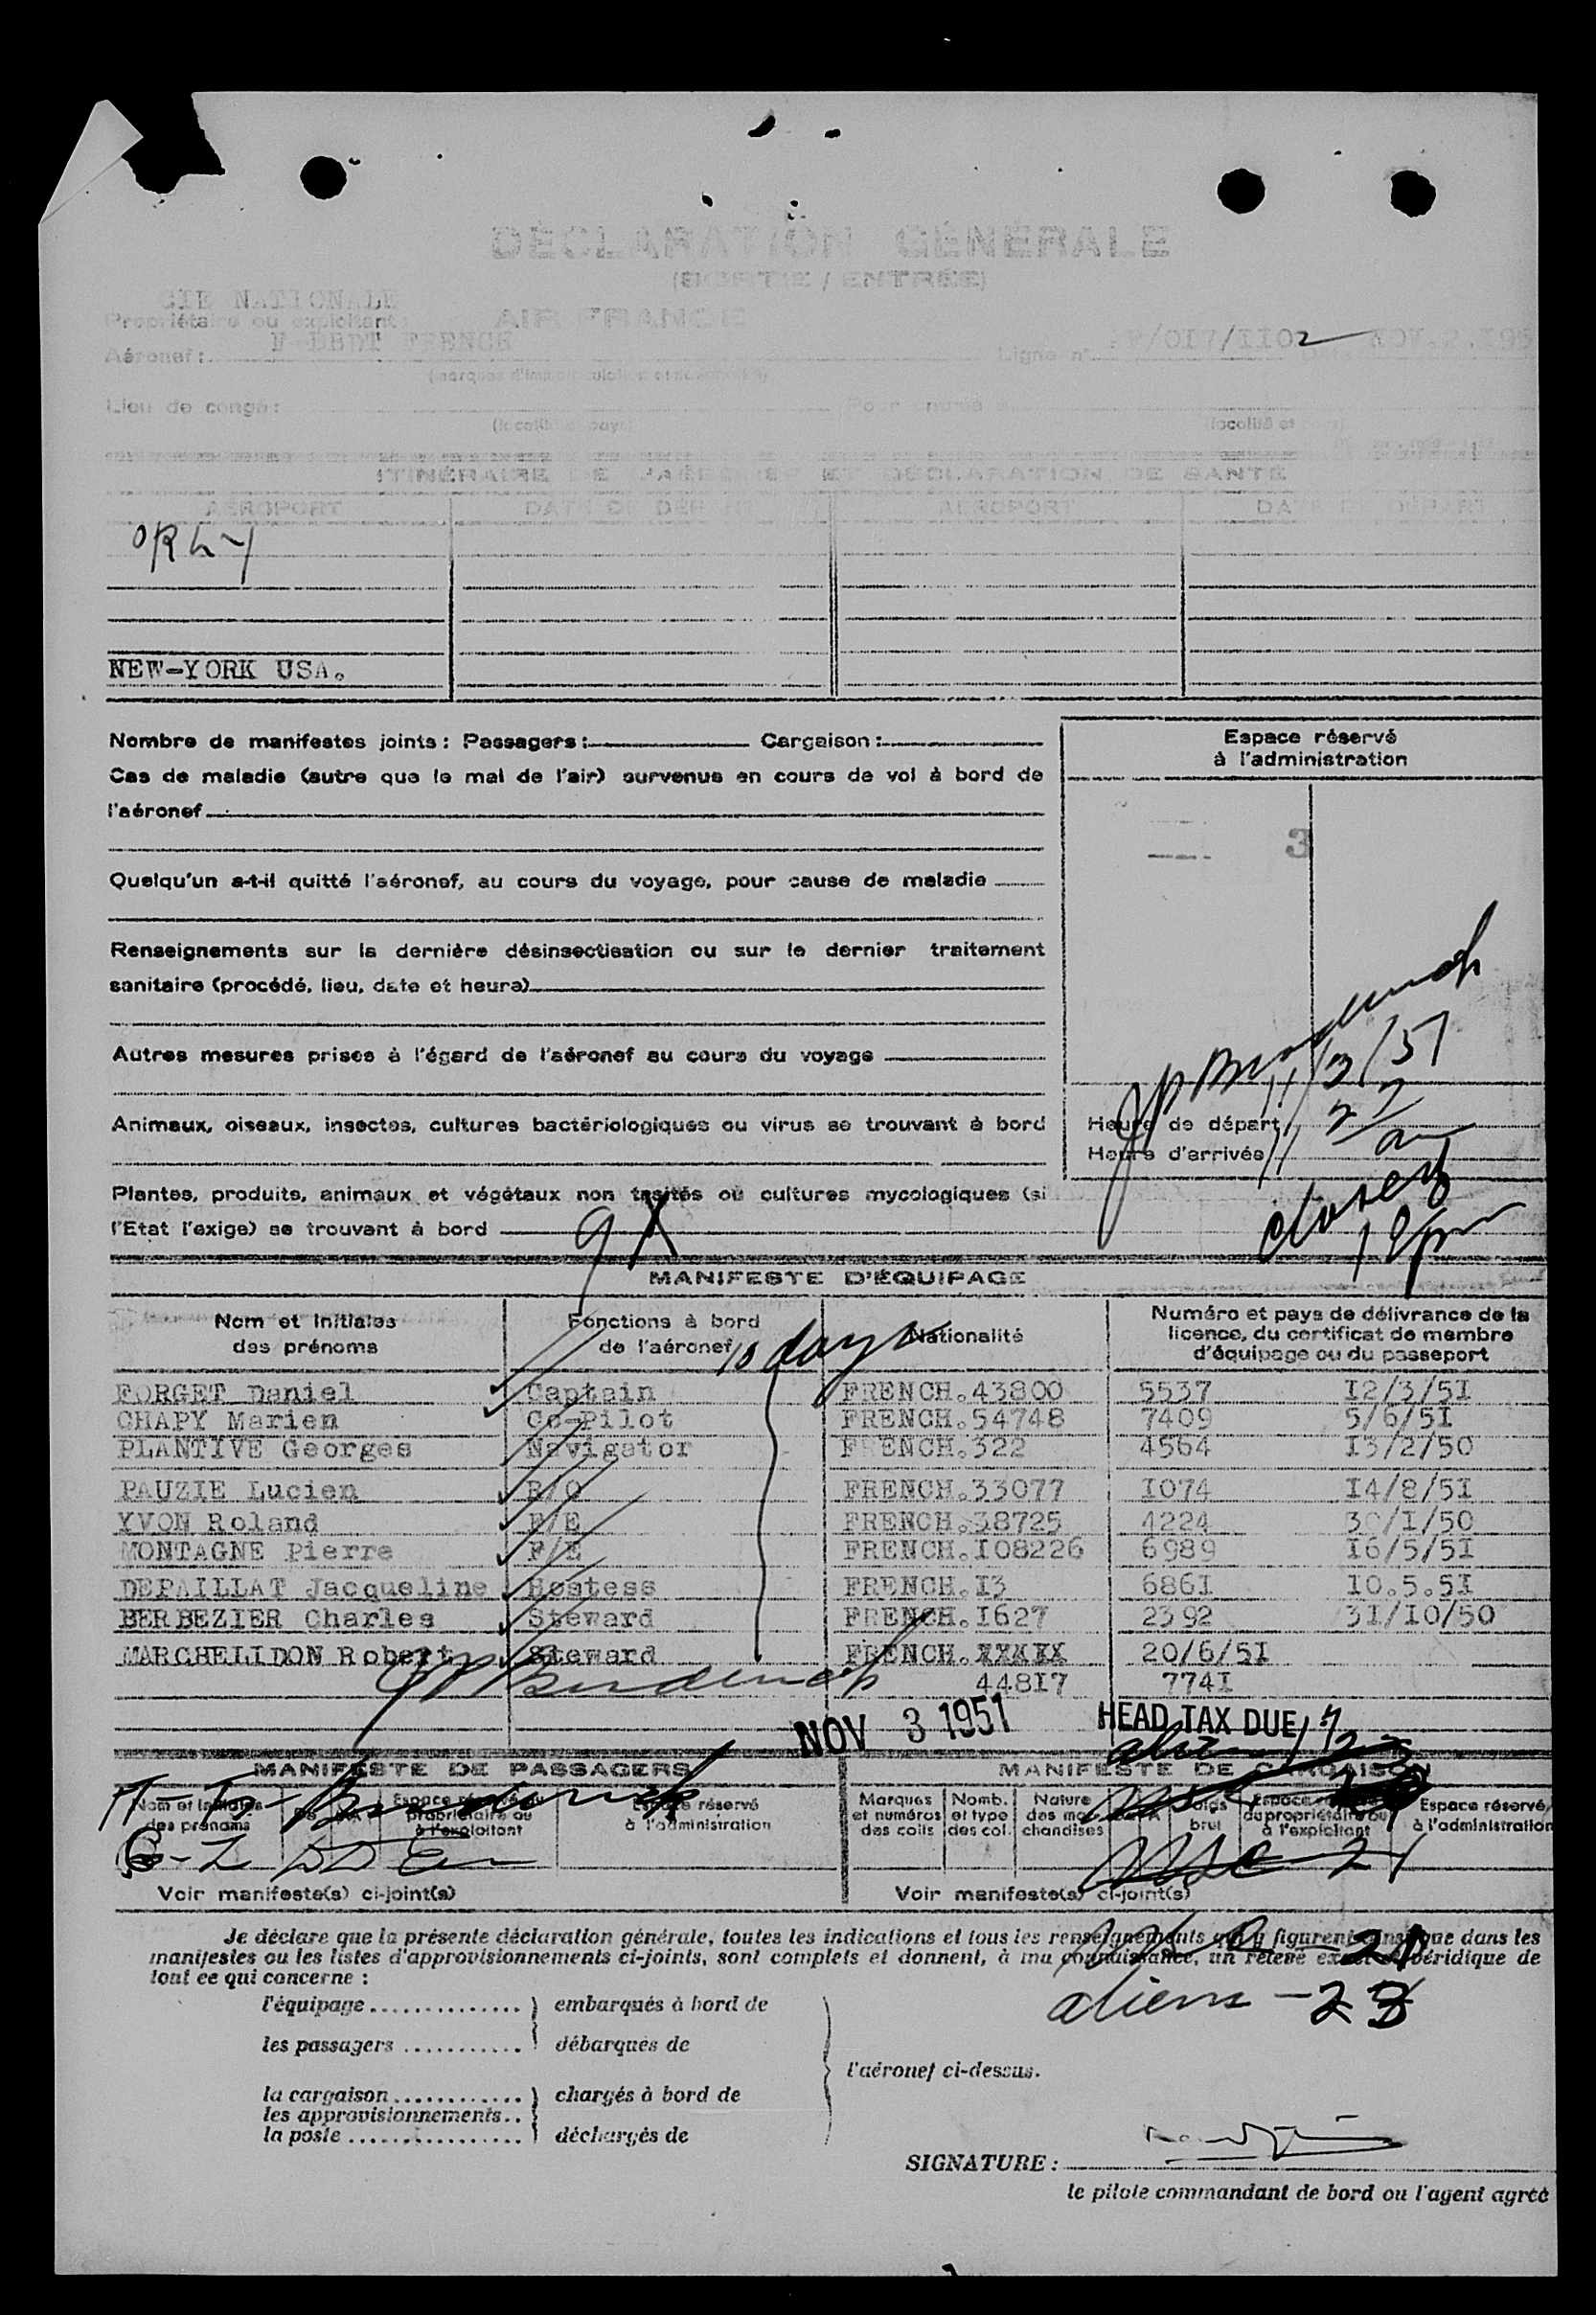 DÉCLARATION GÉNÉRALE
(SORTIE / ENTRÉE)
CIE NATIONALE
Propriétaire ou exploitant: AIR FRANCE
Aéronef: Ligne n°
Lieu de congé:
ITINÉRAIRE DE ET DÉCLARATION DE SANTÉ
AÉROPORT AÉROPORT
ORLY
NEW-YORK USA.
Nombre de manifestes joints: Passagers: Cargaison:
Espace réservé
à l'administration
Cas de maladie (autre que le mal de l'air) survenus en cours de vol à bord de
l'aéronef
3
Quelqu'un a-t-il quitté l'aéronef, au cours du voyage, pour cause de maladie
Renseignements sur la dernière désinsectisation ou sur le dernier traitement
sanitaire (procédé, lieu, date et heure)
11/3/51
Autres mesures prises à l'égard de l'aéronef au cours du voyage
Animaux, oiseaux, insectes, cultures bactériologiques ou virus se trouvant à bord
Heure de départ
Heure d'arrivée
Plantes, produits, animaux et végétaux non traités ou cultures mycologiques (si
l'Etat l'exige) se trouvant à bord
9 X
MANIFESTE D'ÉQUIPAGE
Nom et initiales des prénoms
Fonctions à bord de l'aéronef
Nationalité
Numéro et pays de délivrance de la licence, du certificat de membre d'équipage ou du passeport
10 days
FORGET Daniel Captain FRENCH.43800 5537 I2/3/5I
CHAPY Marien Co-Pilot FRENCH.54748 7409 5/6/5I
PLANTIVE Georges Navigator FRENCH.322 4564 I3/2/50
PAUZIE Lucien R/O FRENCH.33077 I074 I4/8/5I
YVON Roland F/E FRENCH.38725 4224 30/I/50
MONTAGNE Pierre F/E FRENCH.I08226 6989 I6/5/5I
DEPAILLAT Jacqueline Hostess FRENCH.I3 686I I0.5.5I
BERBEZIER Charles Steward FRENCH.I627 2392 3I/I0/50
MARCHELIDON Robert Steward FRENCH.XXXXX 20/6/5I
448I7 774I
NOV 3 1951 HEAD TAX DUE
MANIFESTE DE PASSAGERS
MANIFESTE DE CARGAISON
Nom et initiales des prénoms
Espace réservé au propriétaire ou à l'exploitant
Espace réservé à l'administration
Marques et numéros des colis
Nomb. et type des col.
Nature des mar- chandises
Poids brut
Espace réservé au propriétaire ou à l'exploitant
Espace réservé à l'administration
Voir manifeste(s) ci-joint(s)
Voir manifeste(s) ci-joint(s)
Je déclare que la présente déclaration générale, toutes les indications et tous les renseignements qui y figurent ainsi que dans les
manifestes ou les listes d'approvisionnements ci-joints, sont complets et donnent, à ma connaissance, un relevé exact et véridique de
tout ce qui concerne :
aliens - 23
l'équipage .............. embarqués à bord de
les passagers ........... débarqués de
l'aéronef ci-dessus.
la cargaison ............ chargés à bord de
les approvisionnements..
la poste ................ déchargés de
SIGNATURE :
le pilote commandant de bord ou l'agent agréé